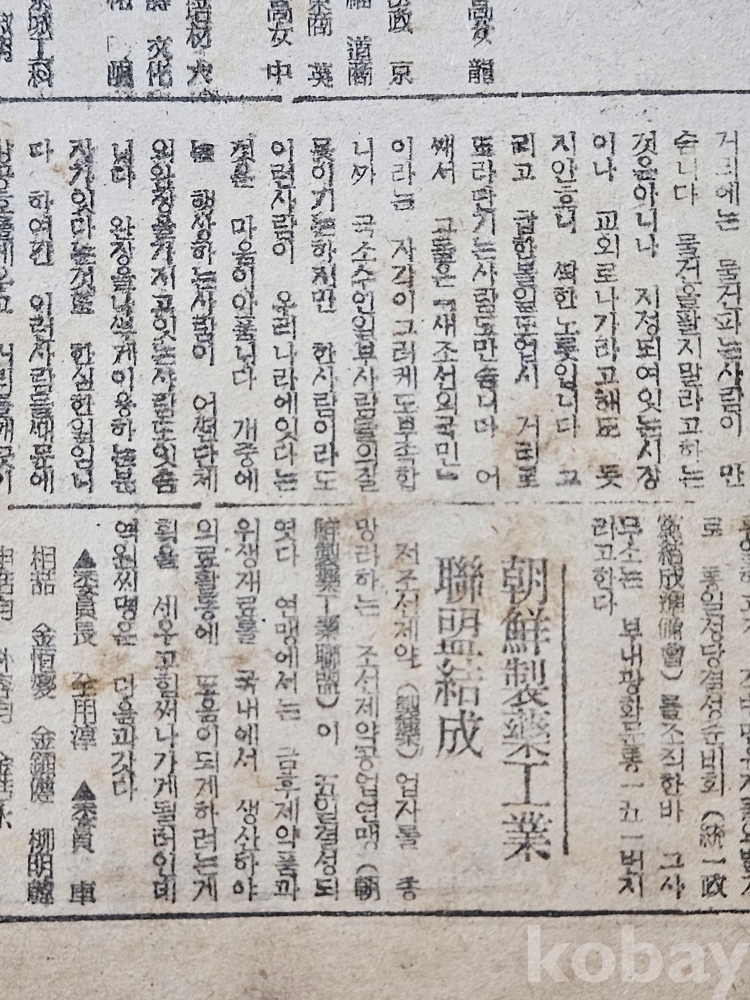 高女 龍
政 京
道商
東商 英
高女 中
培材 大
文化
城工科
거리에는 물건파는사람이 만
습니다 물건을팔지말라고하는
것은아니나 지정되여잇는시장
이나 교회로나가라고해도 듯
지안흐니 딱한노릇입니다 그
리고 참한볼일도업시 거리로
도라단기는사람도만습니다 어
째서 그들은 『새조선의국민』
이라는 자각이그러케도부족합
니까 극소수인일부사람들의질
못이기는하지만 한사람이라도
이런사람이 우리나라에잇다는
것은 마음이아픕니다 개중에
는 행상하는사람이 어떤단체
의완장을가지고잇는사람도잇슴
니다 완장을나쁘게이용하는분
자가잇다는것은 한심한일입니
다 하여간 이런사람들때문에
로 통일정당결성준비회(統一政
黨結成準備會)를조직한바 그사
무소는 부내광화문통一五一번지
리고한다
朝鮮製藥工業
聯盟結成
전조선제약(製藥)업자를 총
망라하는 조선제약공업연맹(朝
鮮製藥工業聯盟)이 五일결성되
엿다 연맹에서는 금후제약품과
위생재료를 국내에서 생산하야
의료활동에 도움이되게하려는게
획을 세우고힘써나가게될터인데
역원씨명은 다음과갓다
▲委員長 全用淳 ▲委員 車
相喆 金恒燮 金 柳明韓